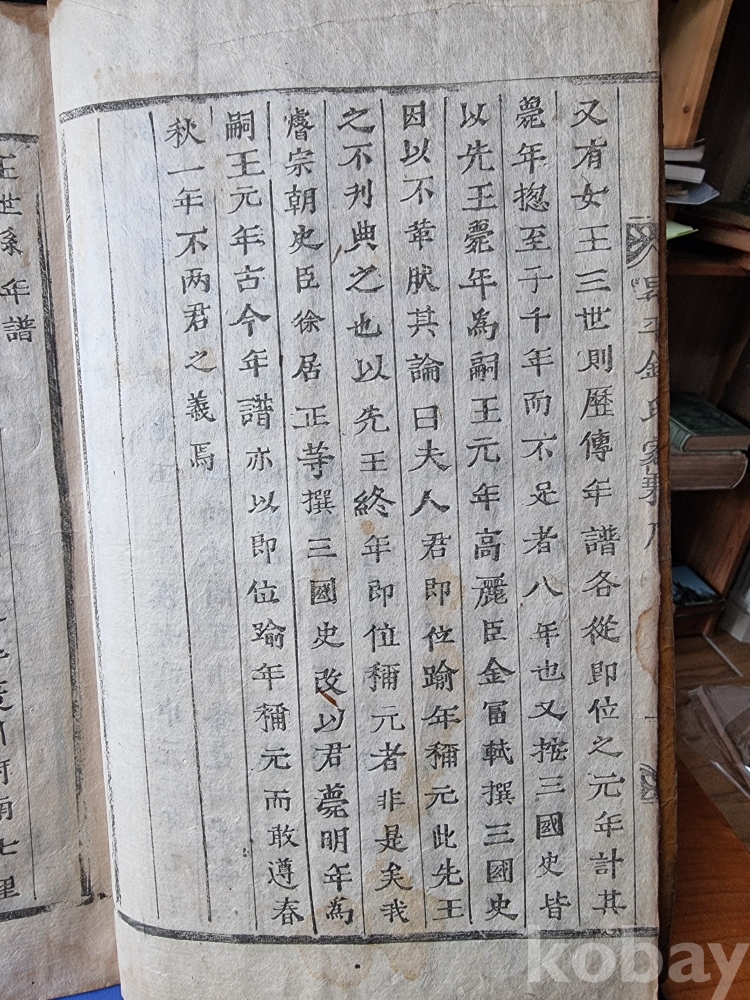 又有女王三世則歷傳年譜各從即位之元年計其
薨年揔至于千年而不足者八年也又按三國史皆
以先王薨年為嗣王元年高麗臣金冨軾撰三國史
因以不革肰其論曰夫人君即位踰年稱元此先王
之不刊典之也以先王終年即位稱元者非是矣我
睿宗朝史臣徐居正等撰三國史改以君薨明年為
嗣王元年古今年譜亦以即位踰年稱元而敢遵春
秋一年不两君之義焉
金氏
王世系年譜
南七里
kobay